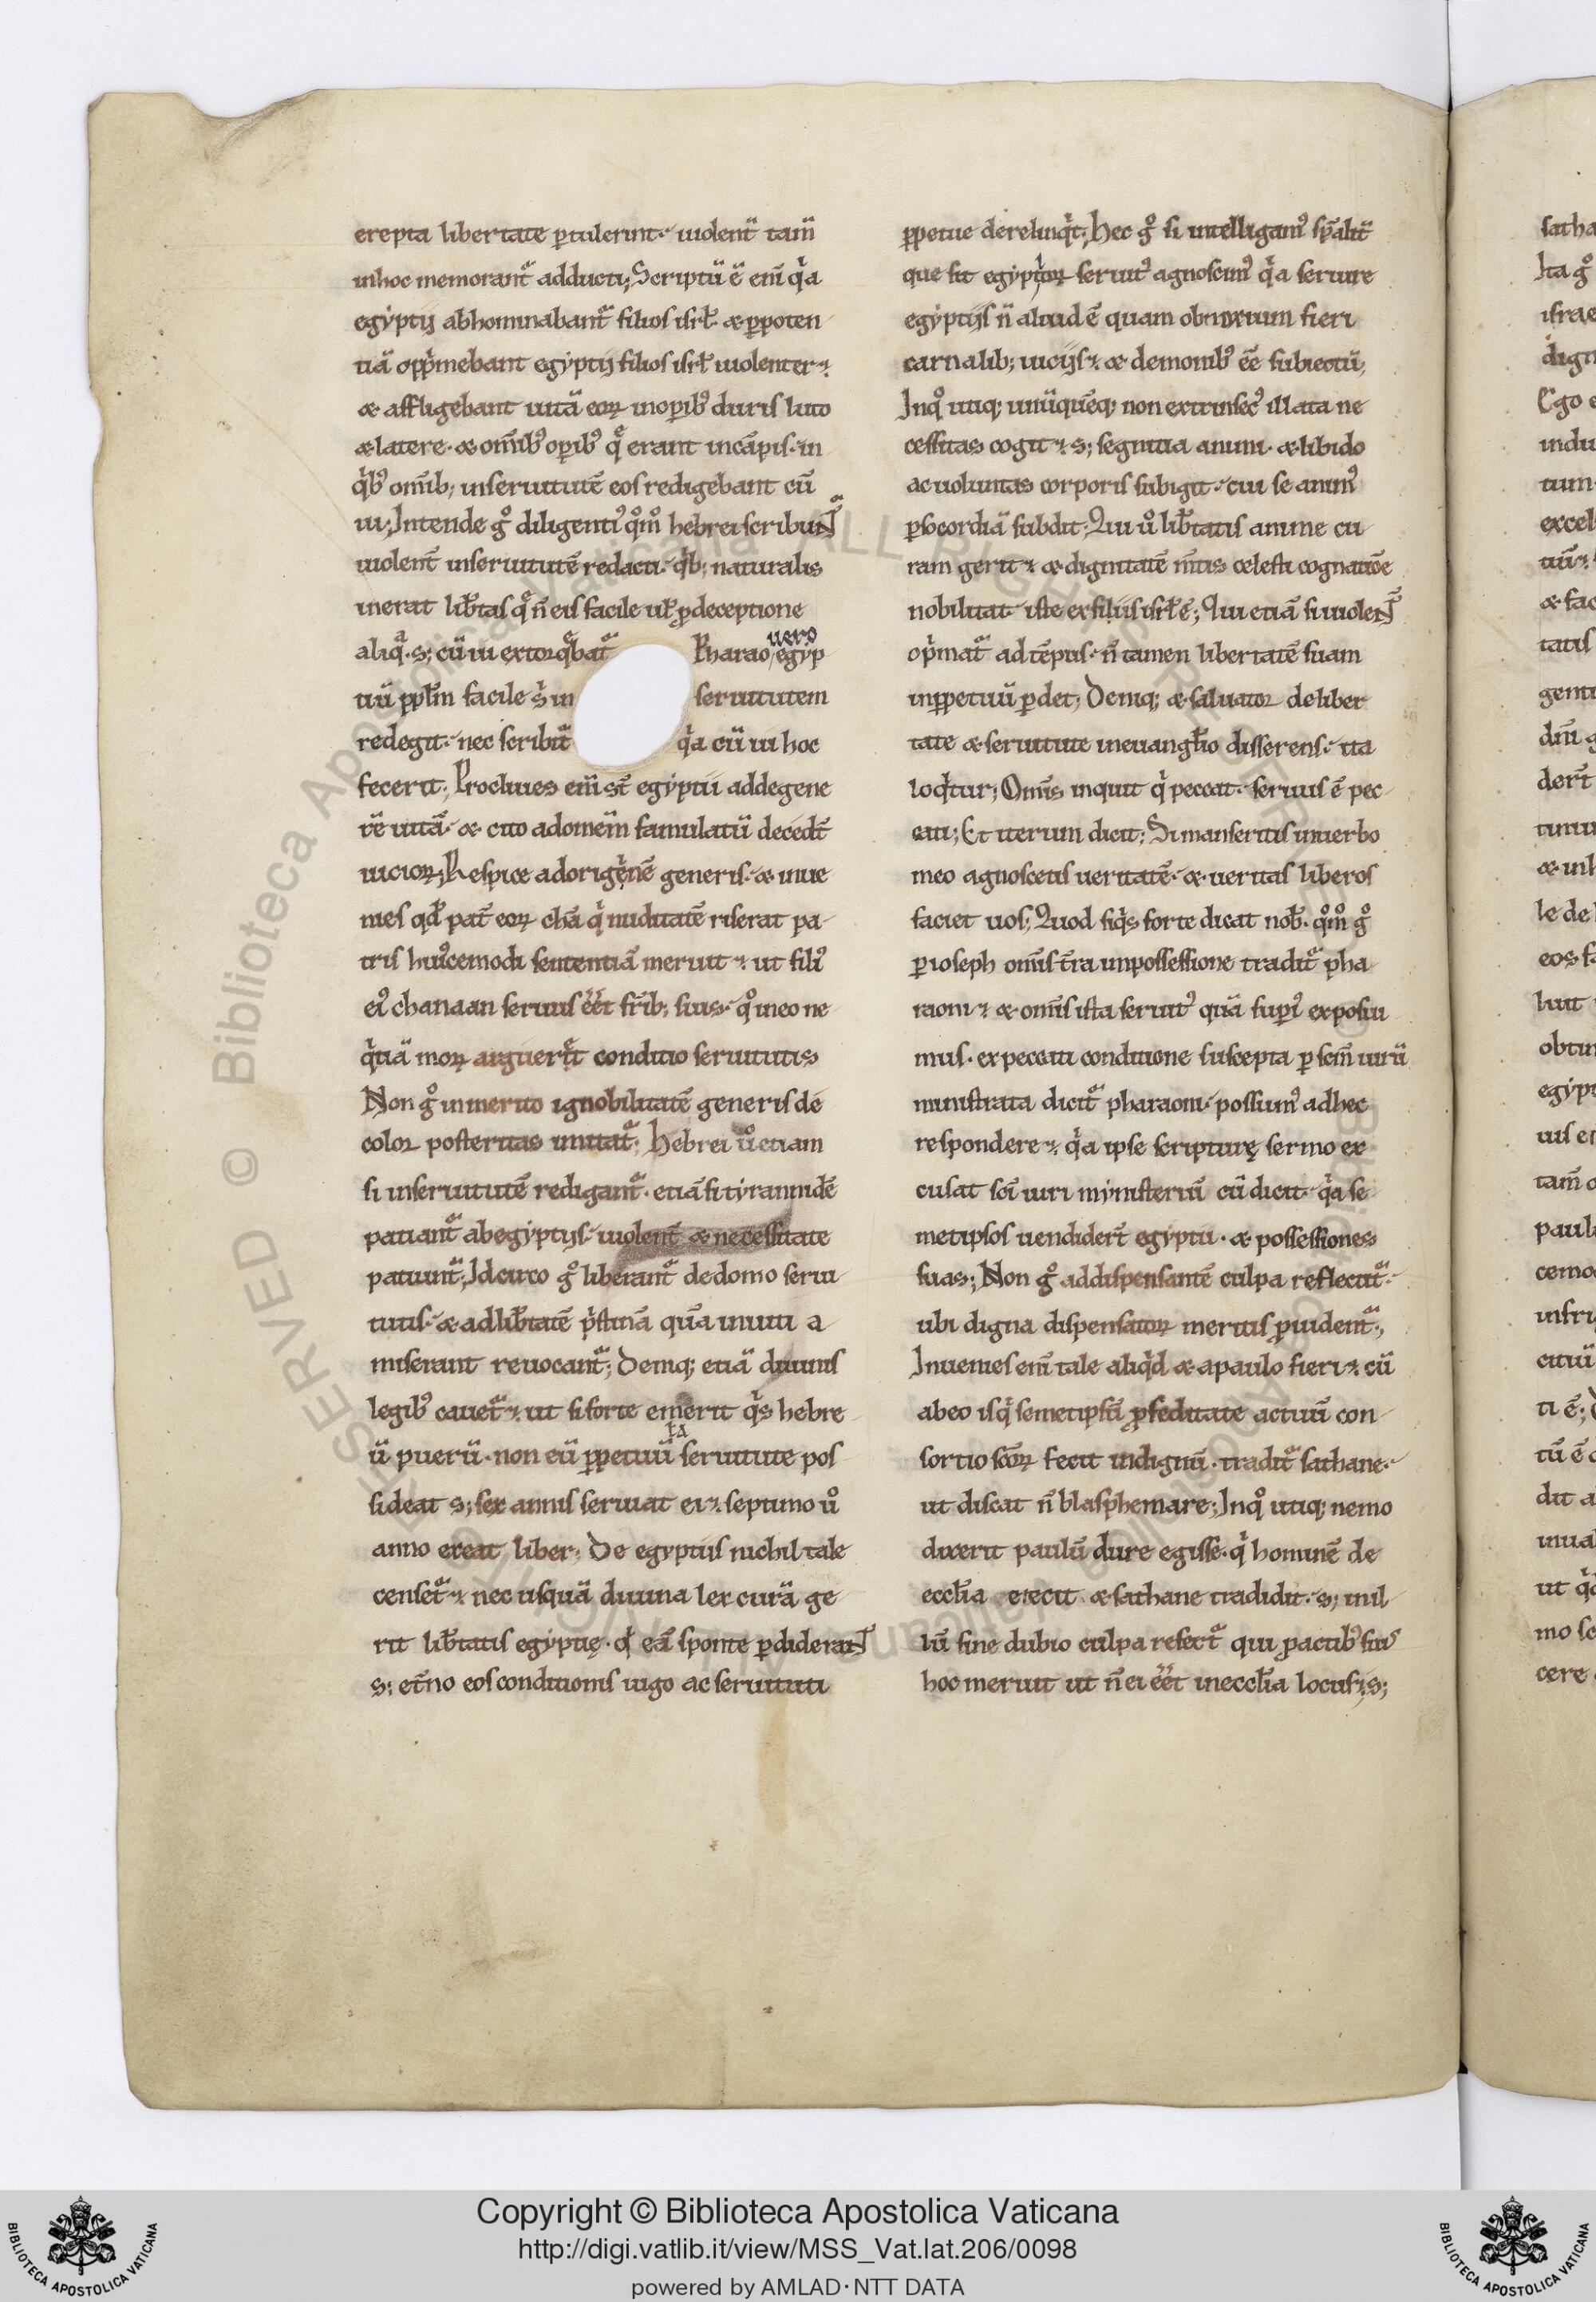 erepta libertate ꝑtulerint. uiolent̄ tam̄
inhoc memorant᷑ adducti; Scriptū ē eni̅ qͥa
egyptij abhominabant᷑ filios isrł. & ꝑpoten
tiā oppͥmebant egyptij filios isrł uiolenter.
& affligebant uitā eoꝝ inoꝑibꝰ duris luto
& latere. & om̅ibꝰ oꝑibꝰ q̄ erant incāpis. in
qͥbꝰ om̅ib; inseruitutē eos redigebant cū
ui; Intende gͦ diligentiꝰ qͦm̊ hebrei scribuNT᷑
uiolent̄ inseruitutē redacti. qͥb; naturalis
inerat lib̄tas q̄ n̄ eis facile uł ꝓdeceptione
aliqͣ. s; cū ui extorq̄bat᷑ Pharao uero egyp
tiū ppłm facile s̓ in seruitutem
redegit. nec scribit᷑ qͥa cū ui hoc
fecerit; Procliues eni̅ st̄ egyptii addegene
rē uitā. & cito adomēm famulatū decedt̄
uicioꝝ; Respice adorigͥnē generis. & inue
nies qd̄ pat̄ eoꝝ chā qͥ nuditatē riserat pa
tris huiꝰcemodi sententiā meruit. ut filiꝰ
eiꝰ chanaan seruus eēt fr̄ib; suis. qͦ ineo ne
qͥtiā moꝝ argueret conditio seruitutis
Non gͦ inmerito ignobilitatē generis de
color posteritas imitat᷑; Hebrei uͦ etiam
si inseruitutē redigant᷑. etiā si tyrannidē
patiant᷑ abegyptijs. uiolent̄ & necessitate
patiunt᷑; Idcirco gͦ liberant᷑ dedomo serui
tutis. & adlib̄tatē pͥstinā quā inuiti a
miserant reuocant᷑; Deniq; etiā diuinis
legibꝰ cauet᷑. ut si forte emerit qͥs hebre
ū puerū. non eū ꝑpetuū seruitute pos
sideat s; sex annis seruiat ei. septimo uͦ
anno exeat liber; De egyptiis nichil tale
censet᷑. nec usquā diuina lex curā ge
rit lib̄tatis egyptię. qͥ eā sponte ꝑdideraNT
s; et̄no eos conditionis iugo ac seruituti
ꝑpetue derelinqͥt; Hec gͦ si intelligamꝰ sp̄alit̄
que sit egyptioꝝ seruitꝰ agnoscimꝰ qͥa seruire
egyptijs n̄ aliud ē quam obnoxium fieri
carnalib; uicijs. & demonibꝰ eē subiectū;
Inqͦ utiq; unūquēq; non extrinsecꝰ illata ne
cessitas cogit. s; segnitia animi. & libido
ac uoluntas corporis subigit. cui se animꝰ
ꝑsocordiā subdit. Qui uͦ lib̄tatis anime cu
ram gerit. & dignitatē m̄tis celesti cognatiōe
nobilitat iste exfiliis isrł ē; Qui etiā si uioleNT̄
opͥmat᷑ ad tēpus. n̄ tamen libertatē suam
inꝑpetuū ꝑdet; Deniq; & saluator deliber
tate & seruitute ineuangłio disserens. ita
loqͥtur; Om̄is inquit qͥ peccat. seruus ē pec
cati; Et iterum dicit; Si manseritis inuerbo
meo agnoscetis ueritatē. & ueritas liberos
faciet uos; Quod siqͥs forte dicat nob̄. qͦm̊ gͦ
ꝑ ioseph om̄is t̄ra inpossessione tradit᷑ pha
raoni. & om̄is ista seruitꝰ quā suꝑiꝰ exposui
mus. expeccati conditione suscepta ꝑ scm̄ uirū
ministrata dicit᷑ pharaoni. possumꝰ adhec
respondere. qͥa ipse scripturę sermo ex
cusat sc̄i uiri mynisteriū cū dicit. qͥa se
metipsos uendidert̄ egyptii. & possessiones
suas; Non gͦ addispensantē culpa reflectit᷑.
ubi digna dispensatoꝝ meritis ꝓuident᷑;
Inuenies eni̅ tale aliqͥd & apaulo fieri. cū
abeo isqͥ semetipsū ꝓfeditate actuū con
sortio scōꝝ fecit indignū. tradit᷑ sathane.
ut discat n̄ blasphemare; Inqͦ utiq; nemo
dixerit paulū dure egisse. qͥ hominē de
eccłia eiecit & sathane tradidit. s; in il
lū sine dubio culpa refert᷑ qui ꝓactibꝰ suis
hoc meruit ut n̄ ei eēt ineccłia locus; s;
Copyright © Biblioteca Apostolica Vaticana
http://digi.vatlib.it/view/MSS_Vat.lat.206/0098
powered by AMLAD·NTT DATA